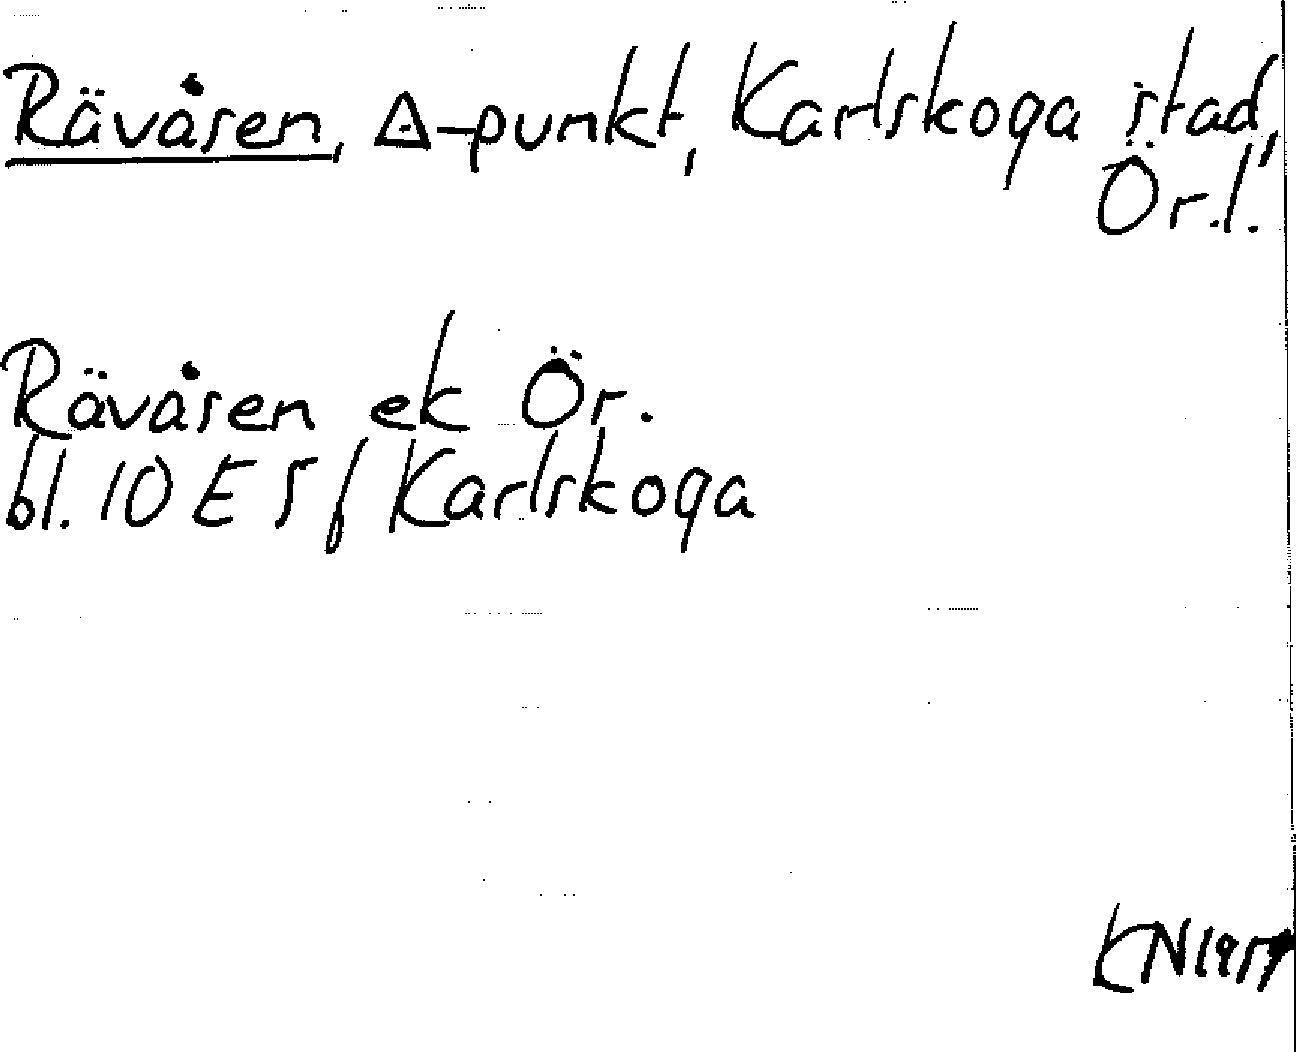 Rävåsen, △-punkt, Karlskoga stad,
Ör.l.
Rävåsen ek Ör.
bl. 10 E 5 f Karlskoga
KN